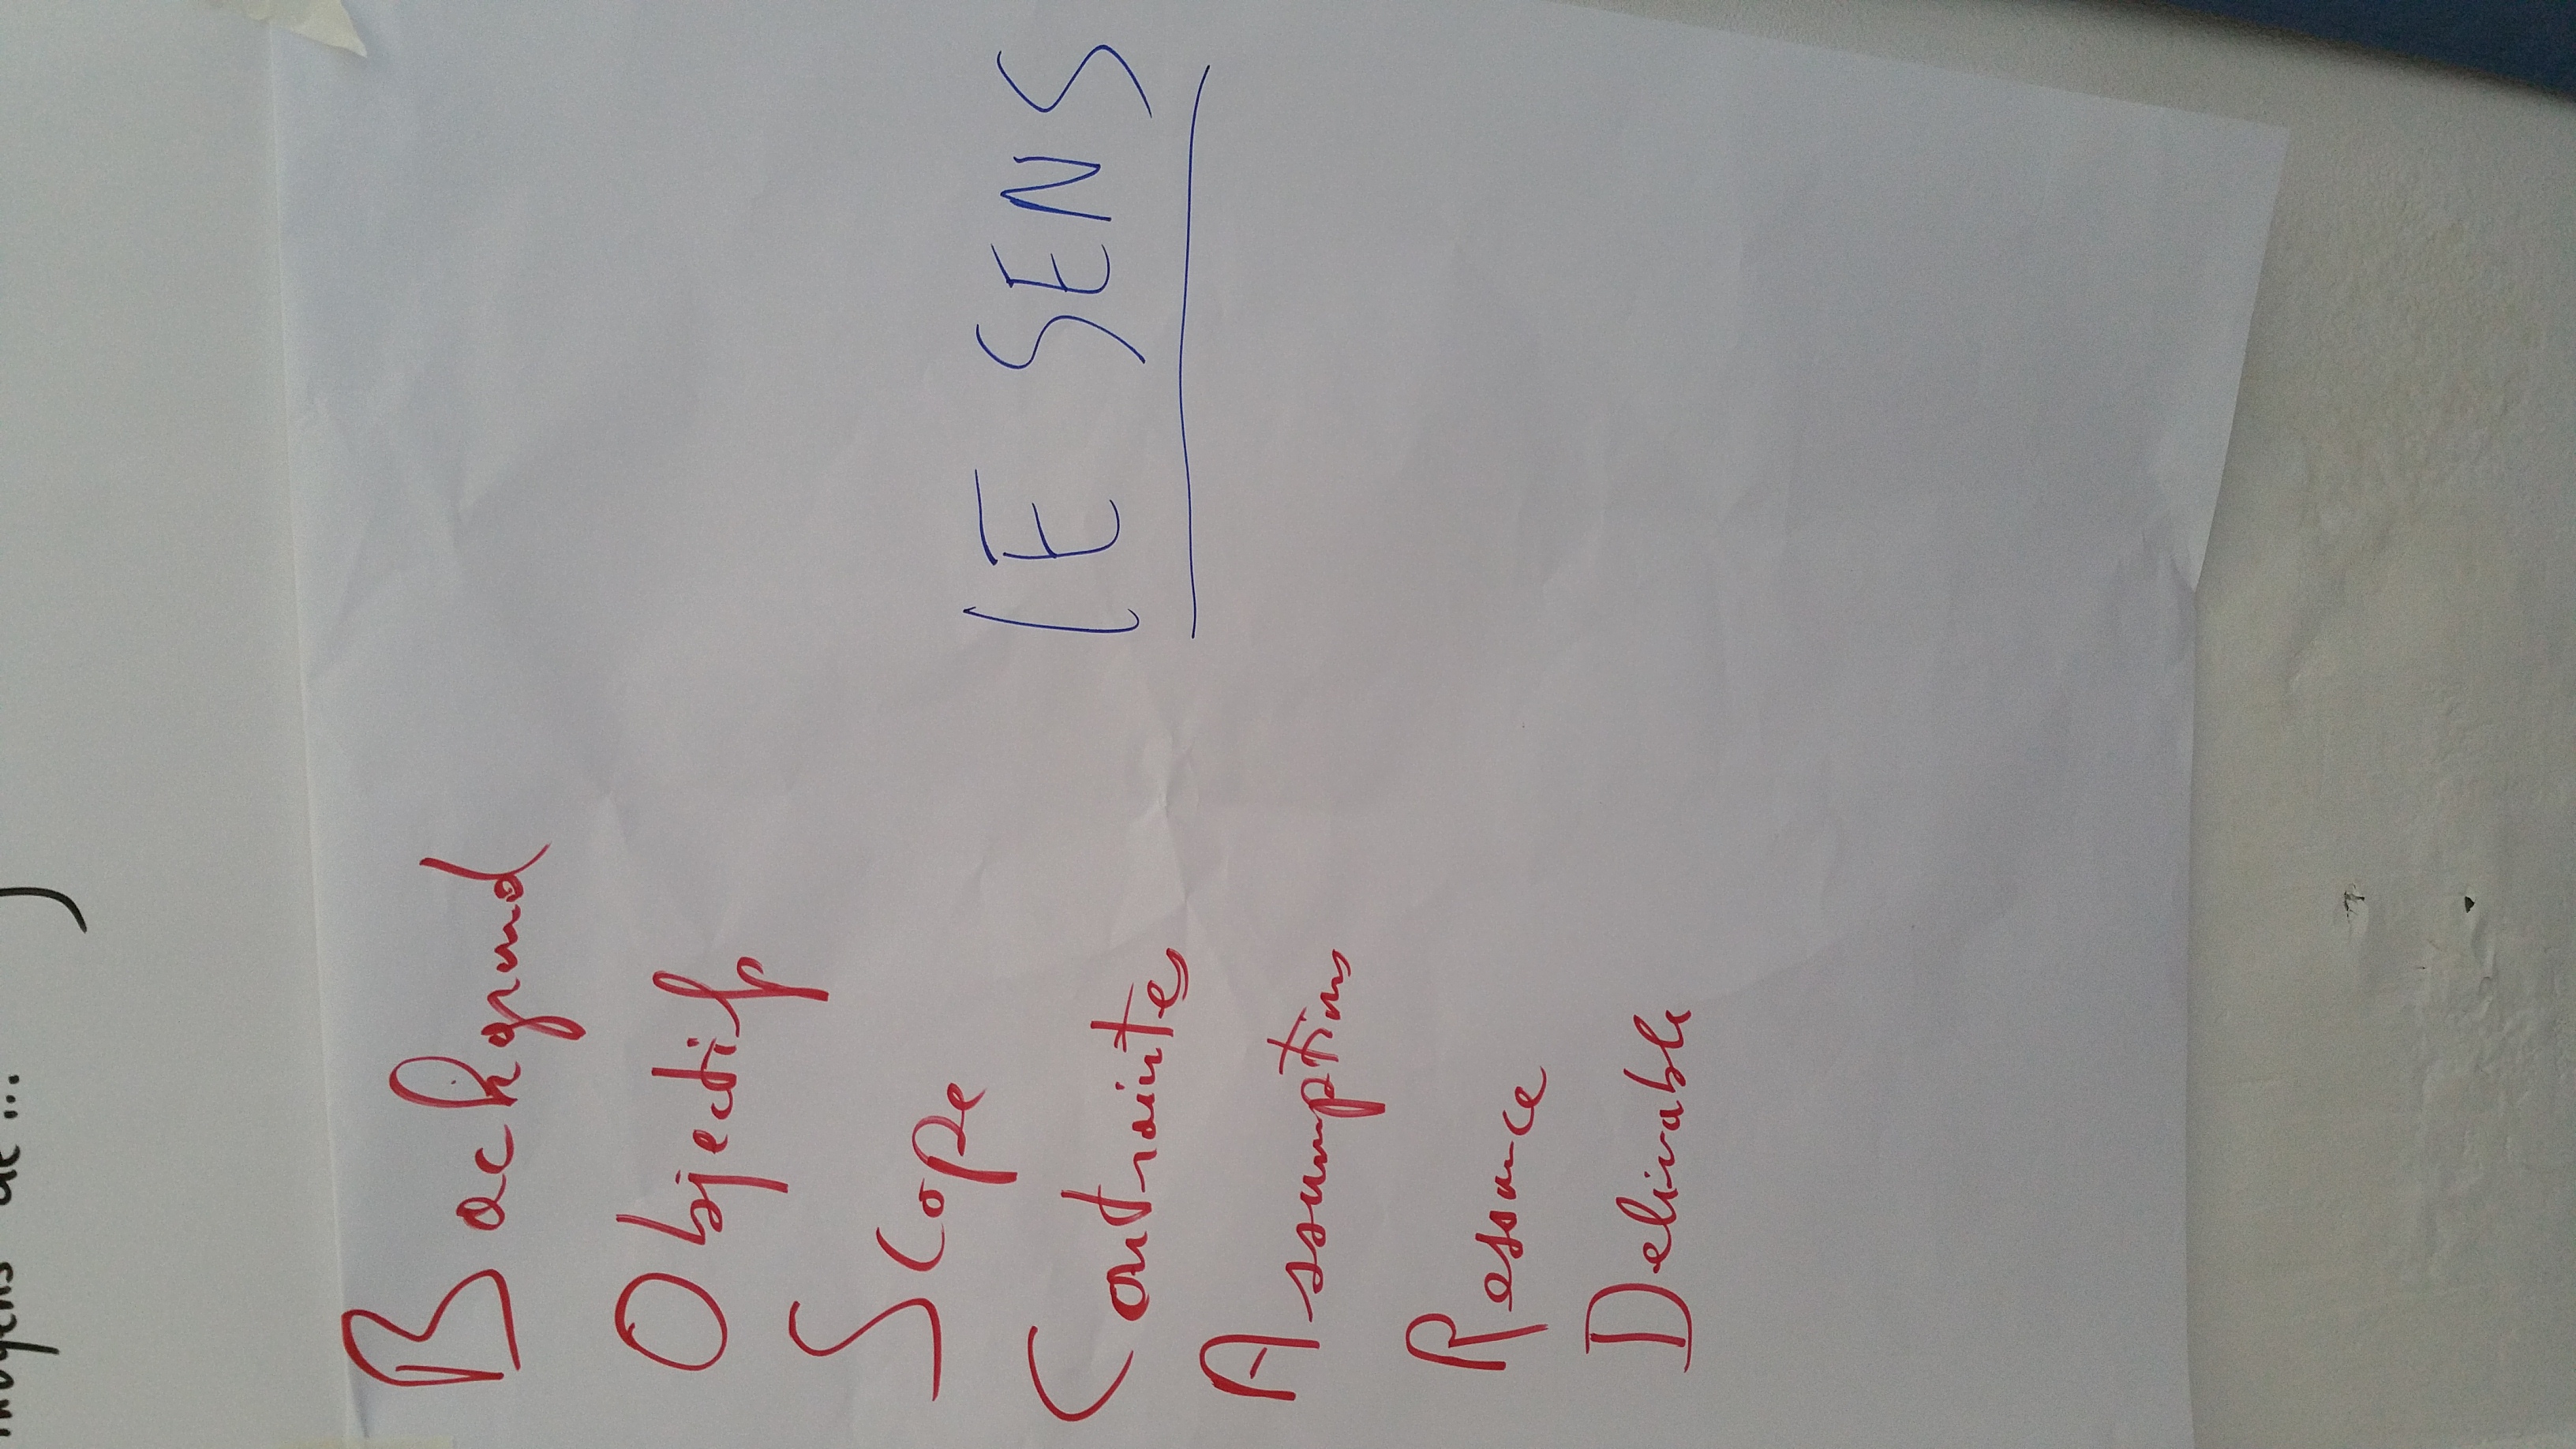 moyens de...
Background
Objectif
Scope
Contrainte
Assumption
Resource
Delivrable
LE SENS